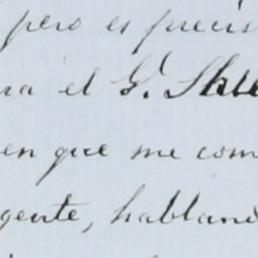 pero es precis
ra el G.
en que me com
gente, habland